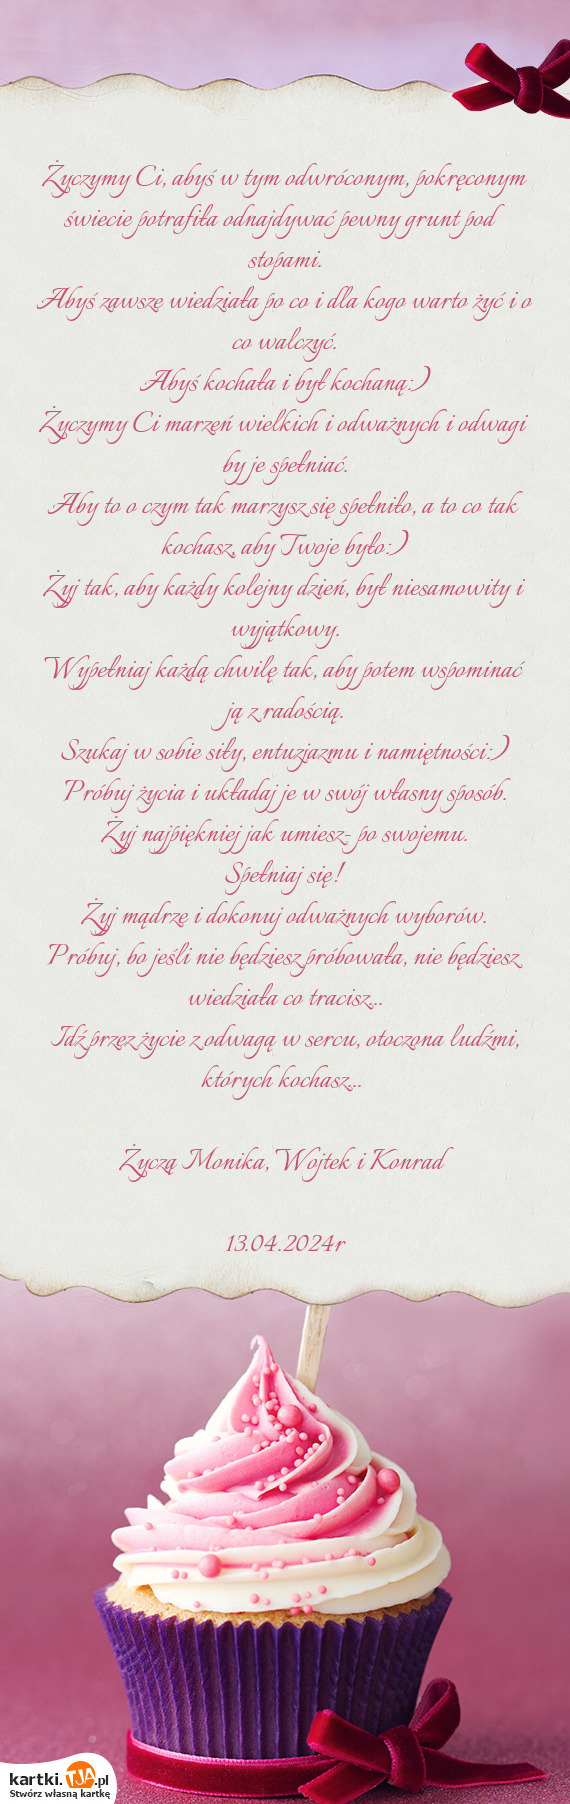 Życzymy Ci, abyś w tym odwróconym, pokręconym
świecie potrafiła odnajdywać pewny grunt pod
stopami.
Abyś zawsze wiedziała po co i dla kogo warto żyć i o
co walczyć.
Abyś kochała i był kochaną:)
Życzymy Ci marzeń wielkich i odważnych i odwagi
by je spełniać.
Aby to o czym tak marzysz się spełniło, a to co tak
kochasz, aby Twoje było:)
Żyj tak, aby każdy kolejny dzień, był niesamowity i
wyjątkowy.
Wypełniaj każdą chwilę tak, aby potem wspominać
ją z radością.
Szukaj w sobie siły, entuzjazmu i namiętności:)
Próbuj życia i układaj je w swój własny sposób.
Żyj najpiękniej jak umiesz- po swojemu.
Spełniaj się!
Żyj mądrze i dokonuj odważnych wyborów.
Próbuj, bo jeśli nie będziesz próbowała, nie będziesz
wiedziała co tracisz...
Idź przez życie z odwagą w sercu, otoczona ludźmi,
których kochasz...
Życzą Monika, Wojtek i Konrad
13.04.2024r
kartki.TJA.pl
Stwórz własną kartkę